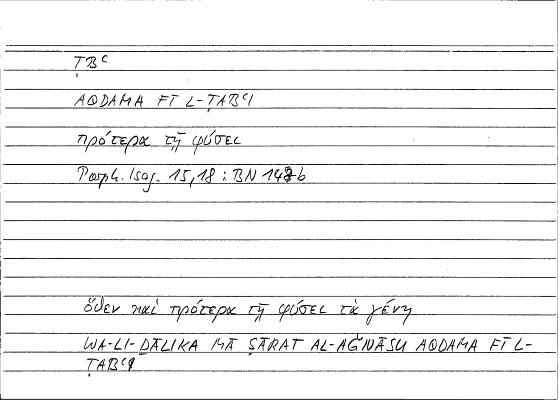 ṬBʿ
AQDAMA FĪ L-ṬABʿI
πρότερα τῇ φύσει
Porph. Isag. 15,18 : BN 148b
ὅθεν καὶ πρότερα τῇ φύσει τὰ γένη
WA-LI-ḎĀLIKA MĀ ṢĀRAT AL-AǦNĀSU AQDAMA FĪ L-
ṬABʿI